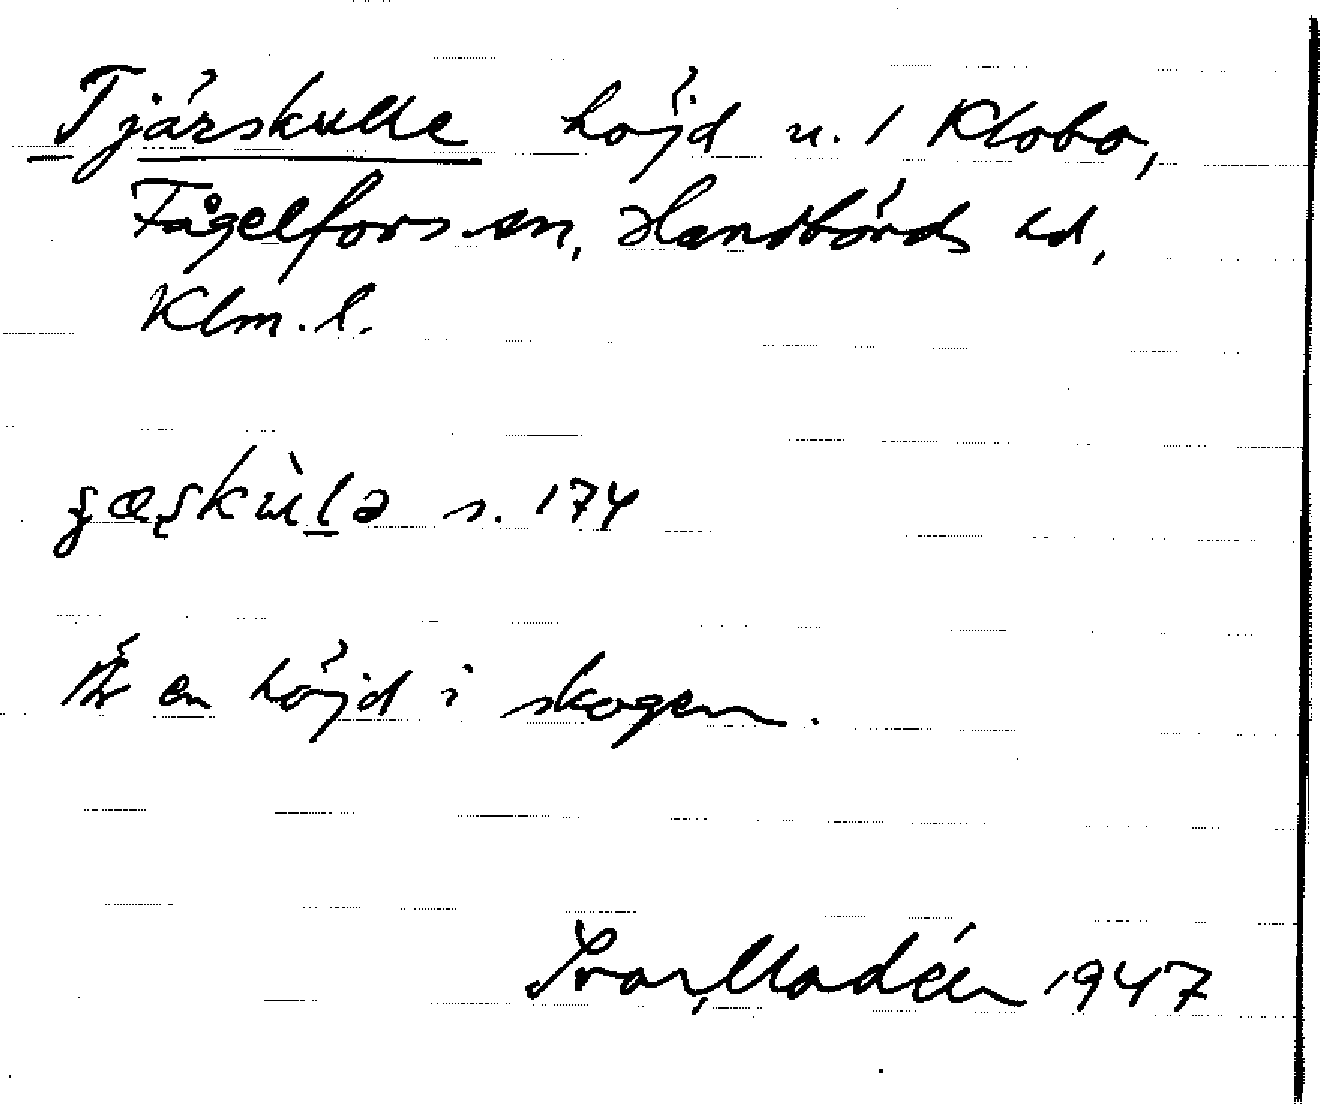 Tjärskulle höjd u. 1 Klobo,
Fågelfors sn, Handbörds hd,
Klm. l.
s. 174
Är en höjd i skogen.
Ivar Modéer 1947